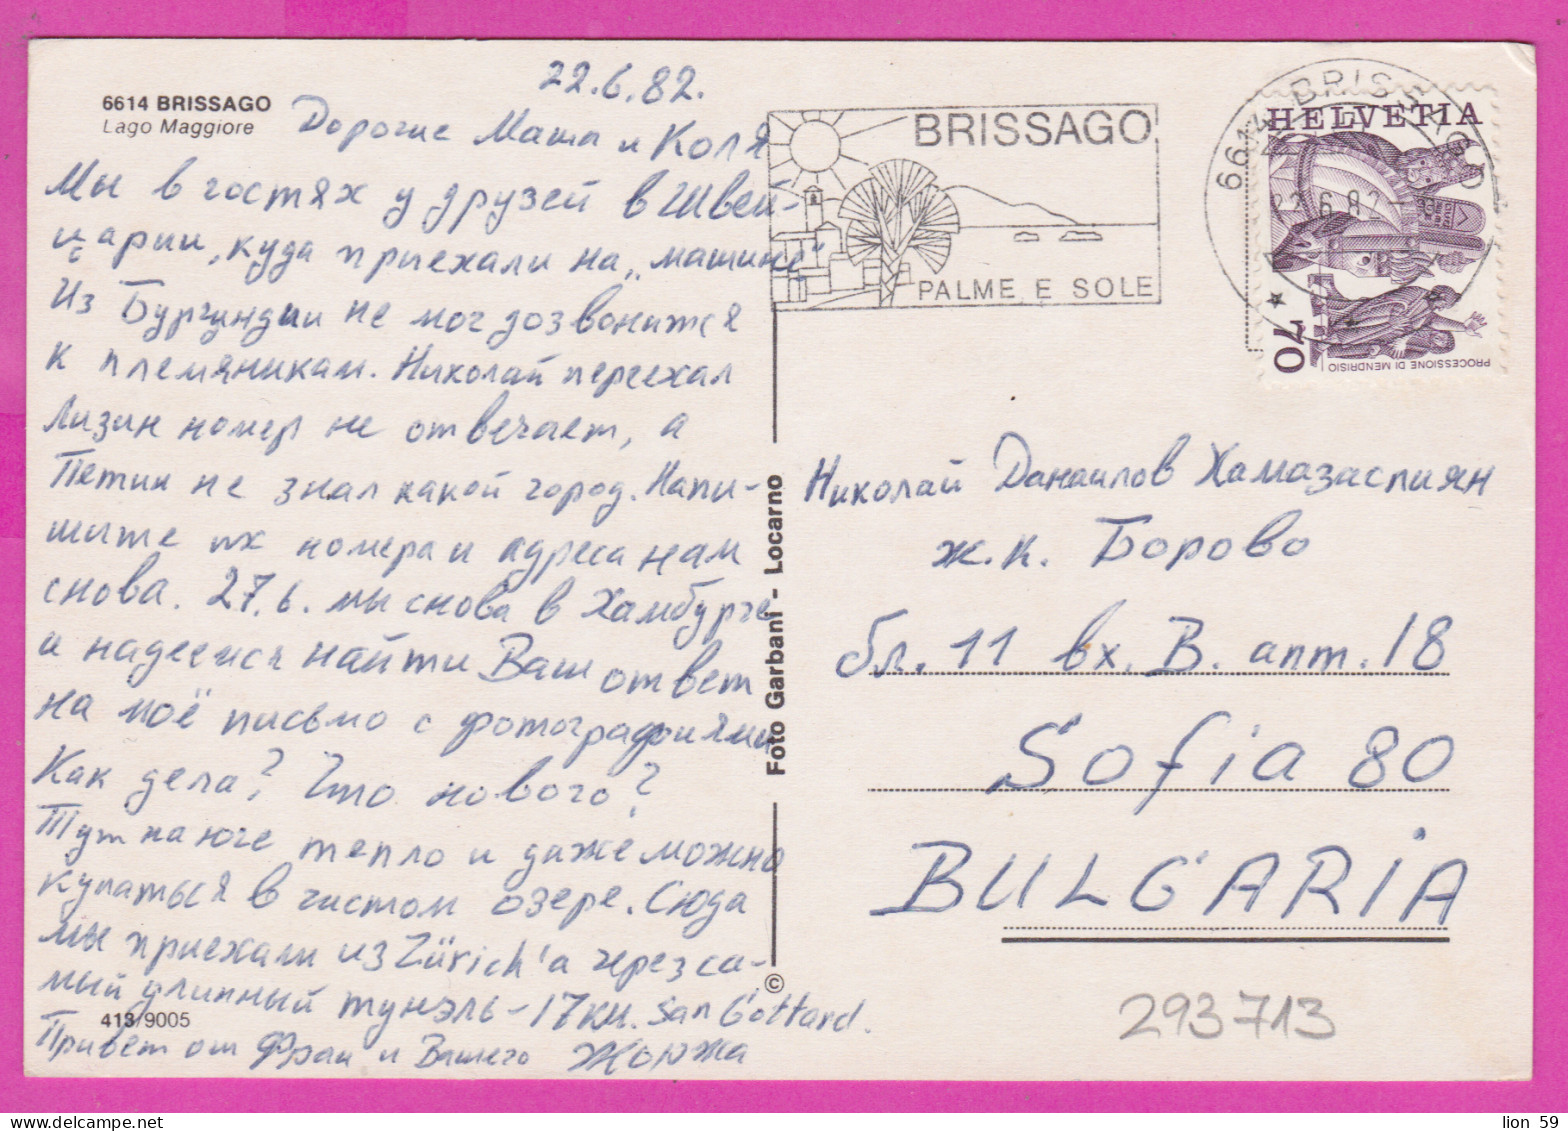 22.6.82.
6614 BRISSAGO
Lago Maggiore
Дорогие Маша и Коля
Мы в гостях у друзей в Швей-
царии, куда приехали на „машине“
Из Бургундии не мог дозвонится
к племяникам. Николай переехал
Лизин номер не отвечает, а
Петин не знал какой город. Напи-
шите их номера и адреса нам
снова. 27.6. мы снова в Хамбурге
и надеемся найти Ваш ответ
на моё письмо с фотографиями
Как дела? Что нового?
Тут на юге тепло и даже можно
купаться в чистом озере. Сюда
мы приехали из Zürich'а через са-
мый длинный тунэль - 17 км. San Gottard.
413/9005
Привет от Фран и Вашего Жоржа
Foto Garbani - Locarno
©
BRISSAGO
PALME E SOLE
6614 BRISSAGO
22.6.82
HELVETIA
70
PROCESSIONE DI MENDRISIO
Николай Данаилов Хамазаспиян
ж.к. Борово
бл. 11 вх. В. апт. 18
Sofia 80
BULGARIA
293713
lion 59